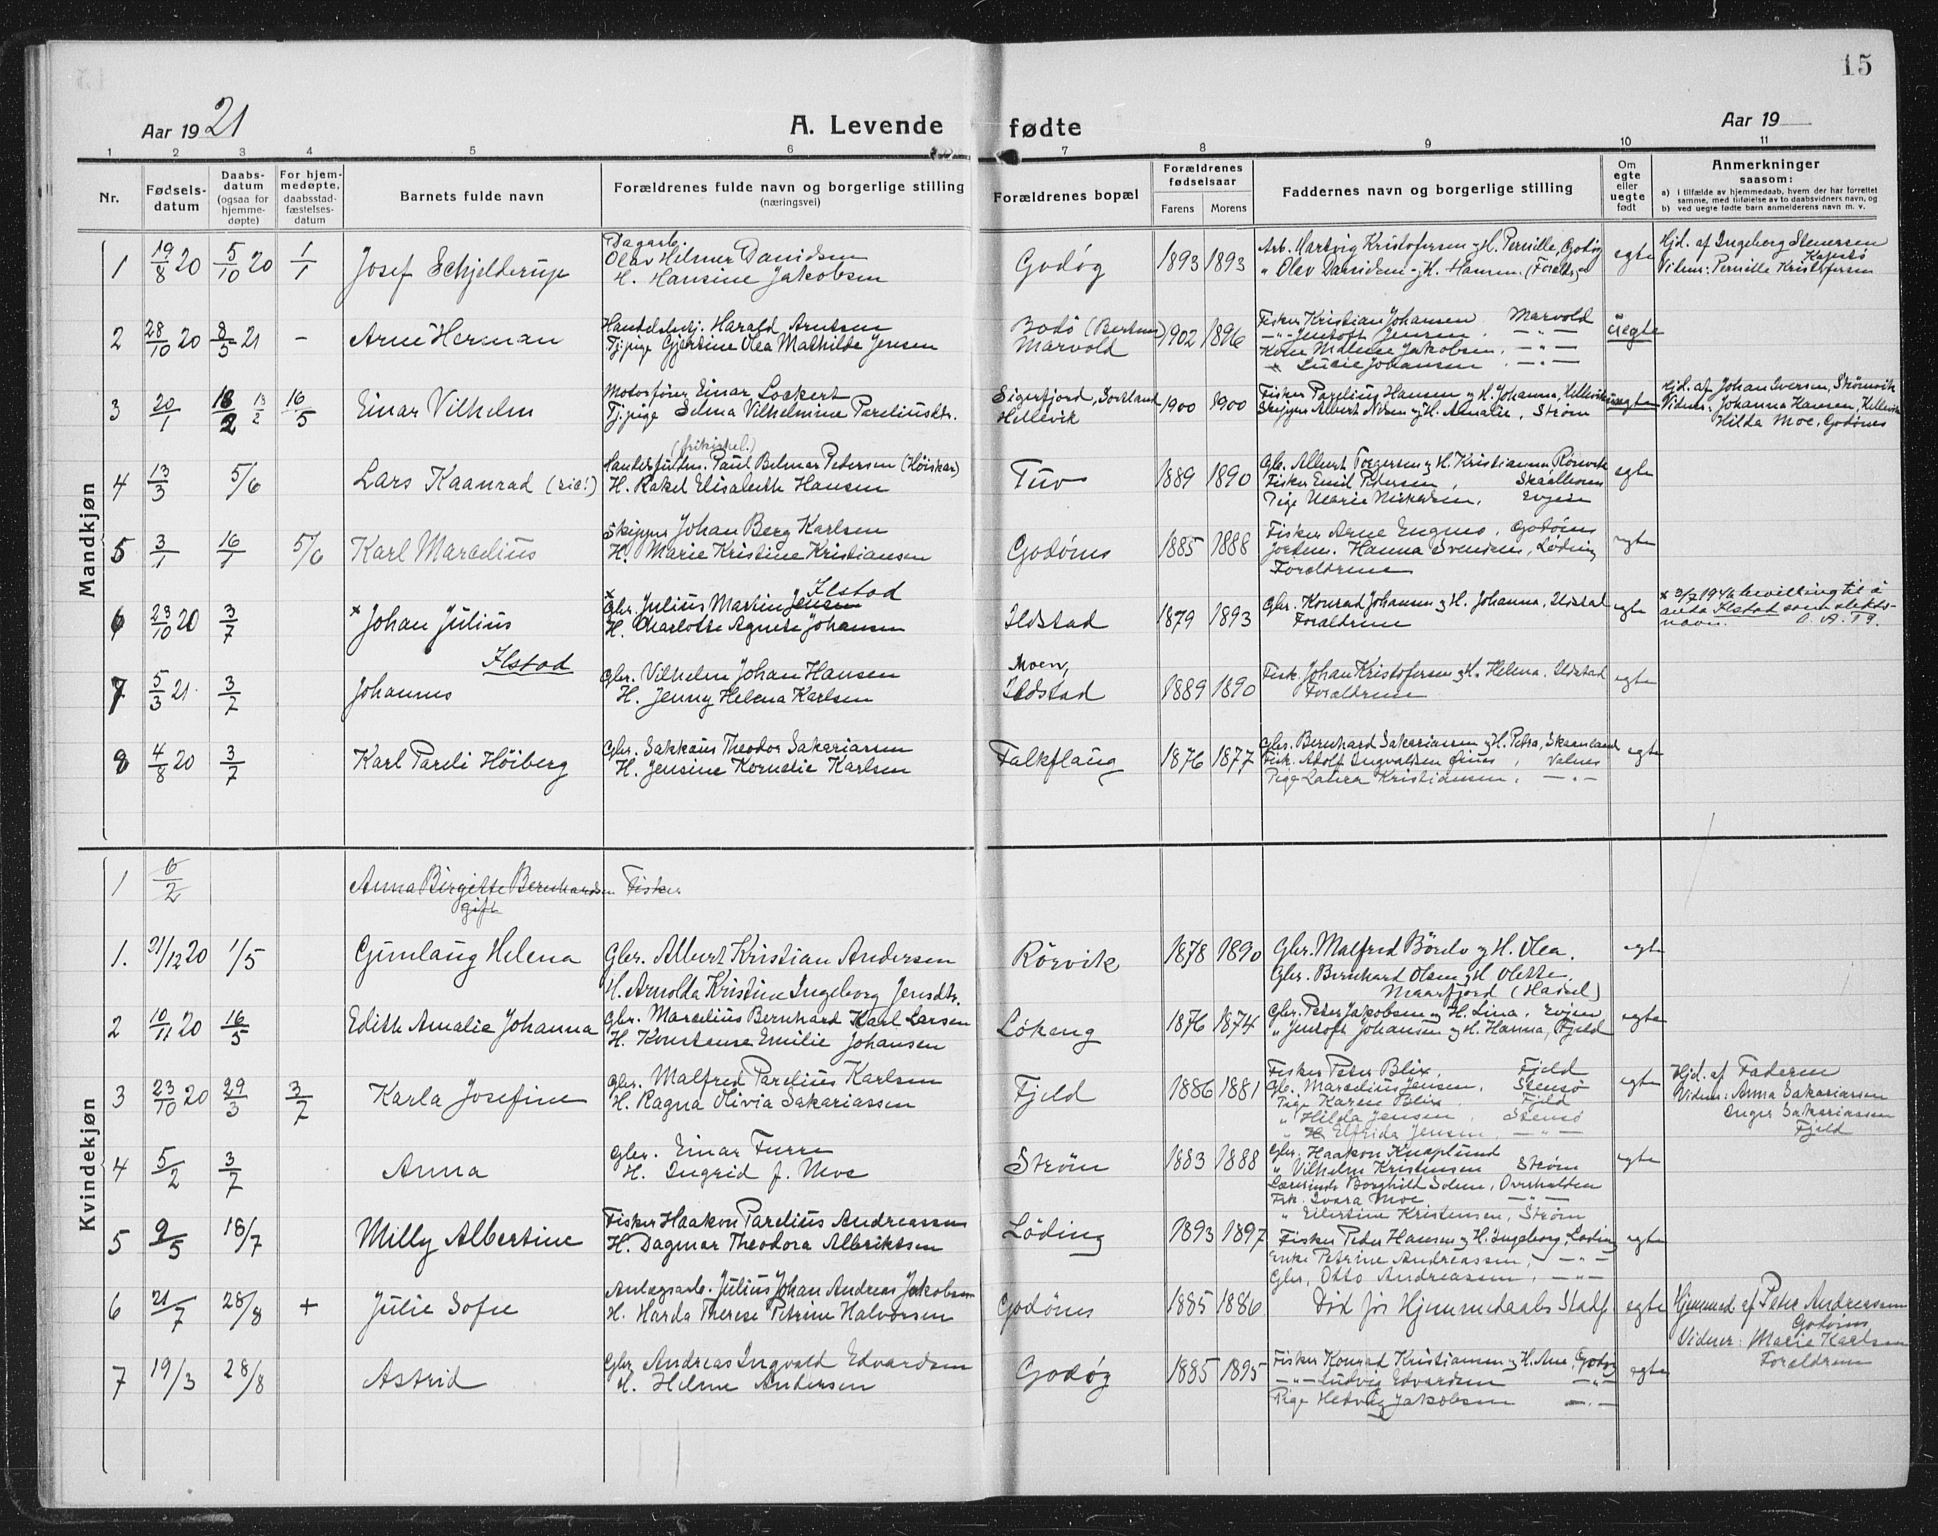 15
Aar 1921
A. Levende fødte
Aar 19
1 2 3 4 5 6 7 8 9 10 11
Nr.
Fødsels-
datum
Daabs-
datum
(ogsaa for
hjemme-
døpte)
For hjem-
medøpte,
daabsstad-
fæstelses-
datum
Barnets fulde navn
Forældrenes fulde navn og borgerlige stilling
(næringsvei)
Forældrenes bopæl
Forældrenes
fødselsaar
Farens Morens
Faddernes navn og borgerlige stilling
Om
egte
eller
uegte
født
Anmerkninger
saasom:
a) i tilfælde av hjemmedaab, hvem der har forrettet
samme, med tilføielse av to daabsvidners navn, og
b) ved uegte fødte barn anmelderens navn m. v.
Mandkjøn
1 19/8 20 5/10 20 1/1 Josef Schjelderup
Dagarb.
Olav Helmer Davidsen
H. Hansine Jakobsen
Godøg 1893 1893
Arb. Hartvig Kristofersen og H. Pernille, Godøg
" Olav Davidsen og H. Hansen. (Foreldr.)
egte
Hjd. af Ingeborg Stenersen
Vidner: Pernille Kristofersen
2 28/10 20 8/5 21 - Arne Herman
Handelsbetj. Harald Arntsen
Tjpige Gjertine Olea Mathilde Jensen
Bodø
Marvold
1902 1896
Fisker Kristian Johansen Marvold
-"- Jentoft Jensen. -"-
Kone Malene Jakobsen. -"-
Lucie Johansen -"-
uegte
3 20/1 18/2 13/2 16/5 Einar Vilhelm
Motorfører Einar Lockert
Tjpige Selma Vilhelmine Pareliusdtr.
Sigerfjord, Sortland
Hellevik
1900 1900
Fisker Parelius Hansen og H. Johanna, Hellevik
Skipper Albert Nilsen og H. Amalie, Strøm
uegte
Hjd. af Johan Iversen, Strømvik
Vidner: Johanna Hansen, Hellevik
Hilda Moe, Godønes
4 13/3 5/6 Lars Kaanrad (sic!)
(frikirkel.)
Paul Belmar Pedersen (Høiskar)
H. Rakel Elisabeth Hansen
Tuv 1889 1890
Gbr. Albert Torgersen og H. Kristianna, Rørvik
Fisker Emil Pedersen, Skaalboen
Pige Marie Nickelsen, Evjen
egte
5 3/1 16/1 5/6 Karl Marcelius
Skipper Johan Berg Karlsen
H. Marie Kristine Kristiansen
Godønes 1885 1888
Fisker Arne Engmo, Godønes
Jordm. Hanna Svendsen, Løding
Foreldrene
egte
6 23/10 20 3/7 × Johan Julius
Ilstad
× Gbr. Julius Martin Jensen
H. Charlotte Agnete Johansen
Ildstad 1879 1893
Gbr. Konrad Johansen og H. Johanna, Ildstad
Foreldrene
egte
× 3/7 1946 bevilling til å
anta Ilstad som slekts-
navn. O. A. T9.
Ilstad
7 5/3 21. 3/7 Johannes
Gbr. Vilhelm Johan Hansen
H. Jenny Helena Karlsen
Moen,
Ildstad
1889 1890
Fisk. Johan Kristofersen og H. Helena. Ildstad
Foreldrene
egte
8 4/8 20 3/7 Karl Pareli Høiberg
Gbr. Sakkæus Theodor Sakariassen
H. Jensine Kornelie Karlsen
Falkflaug 1876 1877
Gbr. Bernhard Sakariassen og H. Petra, Skaanland
Fisk. Adolf Ingvaldsen, Valnes
Pige Laura Kristiansen, -"-
egte
Kvindekjøn
1 6/2 Anna Birgitte Bernhardsen Fisker
gift
1. 31/12 20 1/5 Gunlaug Helena
Gbr. Albert Kristian Andersen
H. Arnolda Kristine Ingeborg Jensdtr.
Rørvik 1878 1890
Gbr. Malfred Børelv og H. Olea.
Gbr. Bernhard Olsen og H. Olette.
Maarfjord (Hadsel)
egte
2 10/11 20 16/5 Edith Amalie Johanna
Gbr. Marcelius Bernhard Karl Larsen
H. Konstanse Emilie Johansen
Løkeng 1876 1874
Gbr. Peter Jakobsen og H. Lina. Evjen
" Jentoft Johansen og H. Hanna, Fjeld
egte
3 23/10 20 29/3 3/7 Karla Josefine
Gbr. Malfred Parelius Karlsen
H. Ragna Olivia Sakariassen
Fjeld 1886 1881
Fisker Peter Blix, Fjeld
Gb. Marcelius Jensen, Stensø
Pige Karen Blix. Fjeld
" Hilda Jensen, Stensø
" Elfrida Jensen, -"-
egte
Hjd. af Faderen
Vidner: Anna Sakariassen
Inger Sakariassen
Fjeld
4 5/2 3/7 Anna
Gbr. Einar Furre
H. Ingrid f. Moe
Strøm 1883 1888
Gbr. Haakon Knaplund
" Vilhelm Kristensen Strøm
Lærerinde Borghild Solem, Overhalden
Frk. Ivara Moe -"-
" Eilertine Kristensen, Strøm
egte
5 9/5 18/7 Milly Albertine
Fisker Haakon Parelius Andreassen
H. Dagmar Theodora Albriktsen
Løding 1893 1897
Fisker Peder Hansen og H. Ingeborg, Løding
Enke Petrine Andreassen, -"-
Gbr. Otto Andreassen, -"-
egte
6 21/7 28/8 + Julie Sofie
Anlægsarb. Julius Johan Andreas Jakobsen
H. Harda Therese Petrine Halvorsen
Godønes 1885 1886
Død før Hjemmedaabs Stadf
egte
Hjemmed af Peter Andreassen
Godønes
Vidner: Marie Karlsen
Foreldrene
7 19/3 28/8 Astrid
Gbr Andreas Ingvald Edvardsen
H. Helene Andersen
Godøg 1885 1895
Fisker Konrad Kristiansen og H. Ane, Godøg
-"- Ludvig Edvardsen -"-
Pige Hedvig Jakobsen -"-
egte